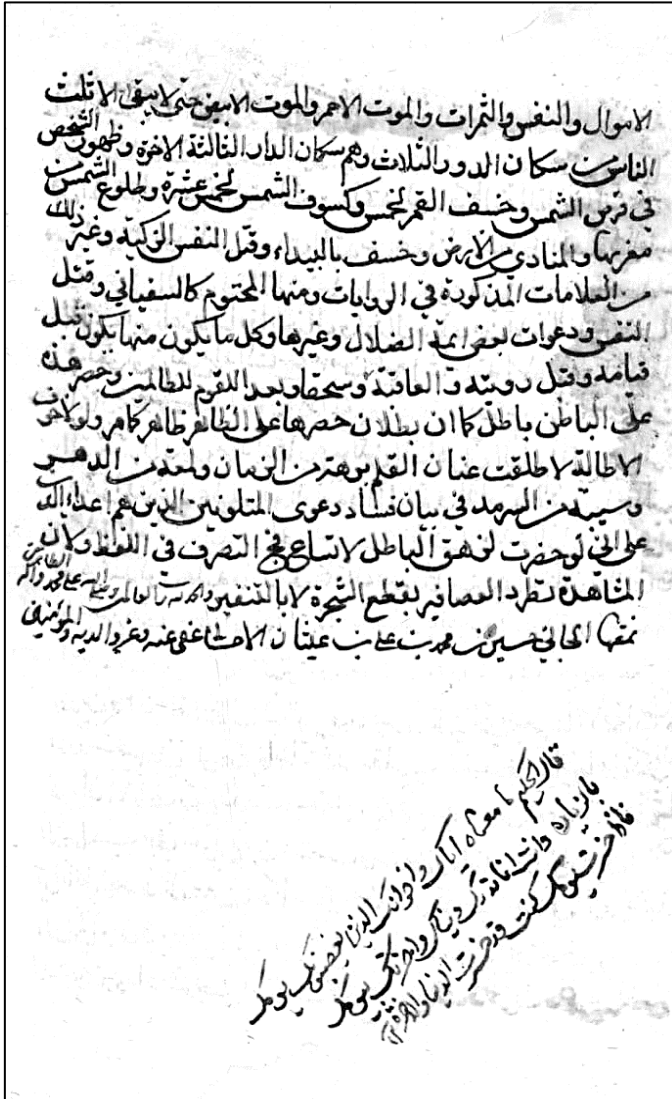 الاموال والنفس والثمرات والموت الاحمر والموت الابيض حتى لا يبقى الا ثلث
الناس من سكان الدور الثلاث وهم سكان الدار الثالثة الاخرة وظهور الشخص
في قرص الشمس وخسف القمر لخمس وكسوف الشمس لخمس عشرة وطلوع الشمس من
مغربها والمنادي من الارض وخسف بالبيداء وقتل النفس الزكية وغير ذلك
من العلامات المذكورة في الروايات ومنها المحتوم كالسفياني وقتل
النفس ودعوات بعض ائمة الضلال وغيرها وكل ما يكون منها يكون قبل
قيامه وقبل رويته والعاقبة وسحقا وبعدا للقوم الظالمين وحصر هذه
على الباطن باطل كما ان بطلان حصرها على الظاهر ظاهر كامر ولولا خوف
الاطالة لاطلقت عنان القلم برهة من الزمان ولمعة من الدهر
وسيبة من السرمد في بيان فساد دعوى المتلونين الذين هم اعداء الله
على اني لو حضرت لزهق الباطل لاتساع فج التصرف في اللفظ ولان
المشاهدة تطرد العصافير بقطع الشجرة لا بالتنفير والحمد لله رب العالمين وصلى الله على محمد واله الطاهرين
نمقها الجاني حسين بن محمد بن علي بن عيثان الاحسائي عفى عنه وعن والديه والمؤمنين
قال الحكيم معناه اياك واخوانك الذين
بالزيارة وانت انما تدرك دنياك واخرتك بيومك
فاذا خسرت يومك كنت قد خسرت الدنيا والاخرة